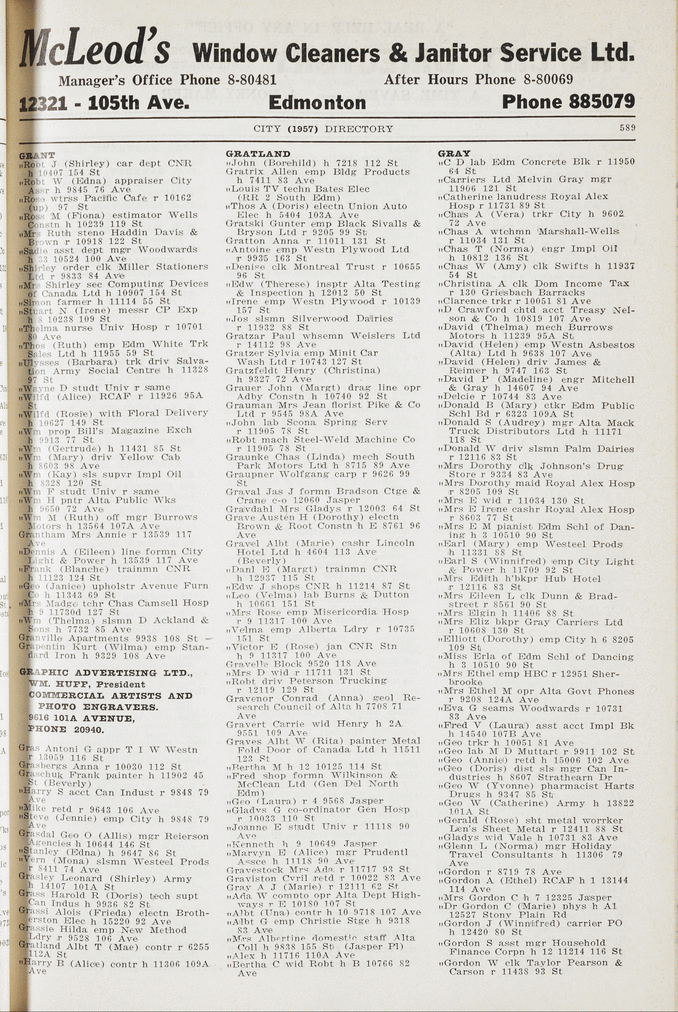 McLeod's Window Cleaners & Janitor Service Ltd.
Manager's Office Phone 8-80481 After Hours Phone 8-80069
12321 - 105th Ave. Edmonton Phone 885079
CITY (1957) DIRECTORY 589
GRANT
„Robt J (Shirley) car dept CNR
h 10407 154 St
„Robt W (Edna) appraiser City
Assr h 9845 76 Ave
„Rose wtrss Pacific Cafe r 10162
(up) 97 St
„Ross M (Fiona) estimator Wells
Constn h 10239 119 St
„Mrs Ruth steno Haddin Davis &
Brown r 10918 122 St
„Sadie asst dept mgr Woodwards
h 33 10524 100 Ave
„Shirley order clk Miller Stationers
Ltd r 9833 84 Ave
„Mrs Shirley sec Computing Devices
of Canada Ltd h 10907 154 St
„Simon farmer h 11114 55 St
„Stuart N (Irene) messr CP Exp
h 8 10238 109 St
„Thelma nurse Univ Hosp r 10701
80 Ave
„Thos (Ruth) emp Edm White Trk
Sales Ltd h 11955 59 St
„Ulysses (Barbara) trk driv Salva-
tion Army Social Centre h 11328
97 St
„Wayne D studt Univ r same
„Wilfd (Alice) RCAF r 11926 95A
St
„Wilfd (Rosie) with Floral Delivery
h 10627 149 St
„Wm prop Bill's Magazine Exch
h 9913 77 St
„Wm (Gertrude) h 11431 85 St
„Wm (Mary) driv Yellow Cab
h 8603 98 Ave
„Wm (Kay) sls supvr Impl Oil
h 8328 120 St
„Wm F studt Univ r same
„Wm H pntr Alta Public Wks
h 9650 72 Ave
„Wm M (Ruth) off mgr Burrows
Motors h 13564 107A Ave
Grantham Mrs Annie r 13539 117
Ave
„Dennis A (Eileen) line formn City
Light & Power h 13539 117 Ave
„Frank (Blanche) trainmn CNR
h 11123 124 St
„Geo (Janice) upholstr Avenue Furn
Co h 11343 69 St
„Mrs Madge tchr Chas Camsell Hosp
h 9 11730d 127 St
„Wm (Thelma) slsmn D Ackland &
Sons h 7732 85 Ave
Granville Apartments 9938 108 St
Grapentin Kurt (Wilma) emp Stan-
dard Iron h 9329 108 Ave
GRAPHIC ADVERTISING LTD.,
WM. HUFF, President
COMMERCIAL ARTISTS AND
PHOTO ENGRAVERS.
9616 101A AVENUE,
PHONE 20940.
Gras Antoni G appr T I W Westn
r 13059 116 St
Grasbergs Anna r 10030 112 St
Graschuk Frank painter h 11902 45
St (Beverly)
„Harry S acct Can Indust r 9848 79
Ave
„Mike retd r 9643 106 Ave
„Steve (Jennie) emp City h 9848 79
Ave
Grasdal Geo O (Allis) mgr Reierson
Agencies h 10644 146 St
„Stanley (Edna) h 9647 86 St
„Vern (Mona) slsmn Westeel Prods
r 8411 74 Ave
Grasley Leonard (Shirley) Army
h 14107 101A St
Grass Harold R (Doris) tech supt
Can Indus h 9936 82 St
Grassi Alois (Frieda) electn Broth-
erston Elec h 15220 92 Ave
Grassie Hilda emp New Method
Ldry r 9528 106 Ave
Gratland Albt T (Mae) contr r 6255
112A St
„Harry B (Alice) contr h 11306 109A
Ave
GRATLAND
„John (Borehild) h 7218 112 St
Gratrix Allan emp Bldg Products
h 7411 83 Ave
„Louis TV techn Bates Elec
(RR 2 South Edm)
„Thos A (Doris) electn Union Auto
Elec h 5404 103A Ave
Gratski Gunter emp Black Sivalls &
Bryson Ltd r 9205 99 St
Gratton Anna r 11011 131 St
„Antoine emp Westn Plywood Ltd
r 9935 163 St
„Denise clk Montreal Trust r 10655
96 St
„Edw (Therese) insptr Alta Testing
& Inspection h 12012 50 St
„Irene emp Westn Plywood r 10139
157 St
„Jos slsmn Silverwood Dairies
r 11932 88 St
Gratzar Paul whsemn Weislers Ltd
r 14112 98 Ave
Gratzer Sylvia emp Minit Car
Wash Ltd r 10743 127 St
Gratzfeldt Henry (Christina)
h 9327 72 Ave
Grauer John (Margt) drag line opr
Adby Constn h 10740 92 St
Grauman Mrs Jean florist Pike & Co
Ltd r 9545 98A Ave
„John lab Scona Spring Serv
r 11905 78 St
„Robt mach Steel-Weld Machine Co
r 11905 78 St
Graunke Chas (Linda) mech South
Park Motors Ltd h 8715 89 Ave
Graupner Wolfgang carp r 9626 99
St
Graval Jas J formn Bradson Ctge &
Crane c-o 12060 Jasper
Gravdahl Mrs Gladys r 12003 64 St
Grave Austen H (Dorothy) electn
Brown & Root Constn h E 8761 96
Ave
Gravel Albt (Marie) cashr Lincoln
Hotel Ltd h 4604 113 Ave
(Beverly)
„Danl E (Margt) trainmn CNR
h 12937 115 St
„Edw J shops CNR h 11214 87 St
„Leo (Velma) lab Burns & Dutton
h 10661 151 St
„Mrs Rose emp Misericordia Hosp
r 9 11317 100 Ave
„Velma emp Alberta Ldry r 10735
151 St
„Victor E (Rose) jan CNR Stn
h 9 11317 100 Ave
Gravelle Block 9520 118 Ave
„Mrs D wid r 11711 131 St
„Robt driv Peterson Trucking
r 12119 129 St
Gravenor Conrad (Anna) geol Re-
search Council of Alta h 7708 71
Ave
Gravert Carrie wid Henry h 2A
9551 109 Ave
Graves Albt W (Rita) painter Metal
Fold Door of Canada Ltd h 11511
123 St
„Bertha M h 12 10125 114 St
„Fred shop formn Wilkinson &
McClean Ltd (Gen Del North
Edm)
„Geo (Laura) r 4 9568 Jasper
„Gladys G co-ordinator Gen Hosp
r 10033 110 St
„Joanne E studt Univ r 11118 90
Ave
„Kenneth h 9 10649 Jasper
„Marvyn E (Alice) mgr Prudentl
Assce h 11118 90 Ave
Gravestock Mrs Ada r 11717 93 St
Graviston Cyril retd r 10022 83 Ave
Gray A J (Marie) r 12111 62 St
„Ada W compto opr Alta Dept High-
ways r E 10180 107 St
„Albt (Una) contr h 10 9718 107 Ave
„Albt G emp Christie Stge h 9318
83 Ave
„Mrs Albertine domestic staff Alta
Coll h 9838 155 St (Jasper Pl)
„Alex h 11716 110A Ave
„Bertha C wid Robt h B 10766 82
Ave
GRAY
„C D lab Edm Concrete Blk r 11950
64 St
„Carriers Ltd Melvin Gray mgr
11906 121 St
„Catherine laundress Royal Alex
Hosp r 11731 89 St
„Chas A (Vera) trkr City h 9602
72 Ave
„Chas A wtchmn Marshall-Wells
r 11034 131 St
„Chas T (Norma) engr Impl Oil
h 10812 136 St
„Chas W (Amy) clk Swifts h 11937
54 St
„Christina A clk Dom Income Tax
r 130 Griesbach Barracks
„Clarence trkr r 10051 81 Ave
„D Crawford chtd acct Treasy Nel-
son & Co h 10819 107 Ave
„David (Thelma) mech Burrows
Motors h 11239 95A St
„David (Helen) emp Westn Asbestos
(Alta) Ltd h 9638 107 Ave
„David (Helen) driv James &
Reimer h 9747 163 St
„David P (Madeline) engr Mitchell
& Gray h 14607 94 Ave
„Delcie r 10744 83 Ave
„Donald B (Mary) ctkr Edm Public
Schl Bd r 6323 109A St
„Donald S (Audrey) mgr Alta Mack
Truck Distributors Ltd h 11171
118 St
„Donald W driv slsmn Palm Dairies
r 12116 83 St
„Mrs Dorothy clk Johnson's Drug
Store r 9334 83 Ave
„Mrs Dorothy maid Royal Alex Hosp
r 8205 109 St
„Mrs E wid r 11034 130 St
„Mrs E Irene cashr Royal Alex Hosp
r 8603 77 St
„Mrs E M pianist Edm Schl of Dan-
ing h 3 10510 90 St
„Earl (Mary) emp Westeel Prods
h 11331 88 St
„Earl S (Winnifred) emp City Light
& Power h 11709 92 St
„Mrs Edith h'bkpr Hub Hotel
r 12116 83 St
„Mrs Eileen L clk Dunn & Brad-
street r 8561 90 St
„Mrs Elgin h 11406 88 St
„Mrs Eliz bkpr Gray Carriers Ltd
r 10608 130 St
„Elliott (Dorothy) emp City h 6 8205
109 St
„Miss Erla of Edm Schl of Dancing
h 3 10510 90 St
„Mrs Ethel emp HBC r 12951 Sher-
brooke
„Mrs Ethel M opr Alta Govt Phones
r 9208 124A Ave
„Eva G seams Woodwards r 10731
83 Ave
„Fred V (Laura) asst acct Impl Bk
h 14540 107B Ave
„Geo trkr h 10051 81 Ave
„Geo lab M D Muttart r 9911 102 St
„Geo (Annie) retd h 15006 102 Ave
„Geo (Doris) dist sls mgr Can In-
dustries h 8607 Strathearn Dr
„Geo W (Yvonne) pharmacist Harts
Drugs h 9347 85 St
„Geo W (Catherine) Army h 13822
101A St
„Gerald (Rose) sht metal worker
Len's Sheet Metal r 12411 88 St
„Gladys wid Vale h 10731 83 Ave
„Glenn L (Norma) mgr Holiday
Travel Consultants h 11306 79
Ave
„Gordon r 8719 78 Ave
„Gordon A (Ethel) RCAF h 1 13144
114 Ave
„Mrs Gordon C h 7 12325 Jasper
„Dr Gordon C (Marie) phys h A1
12527 Stony Plain Rd
„Gordon J (Winnifred) carrier PO
h 12420 80 St
„Gordon S asst mgr Household
Finance Corpn h 12 11214 116 St
„Gordon W clk Taylor Pearson &
Carson r 11438 93 St